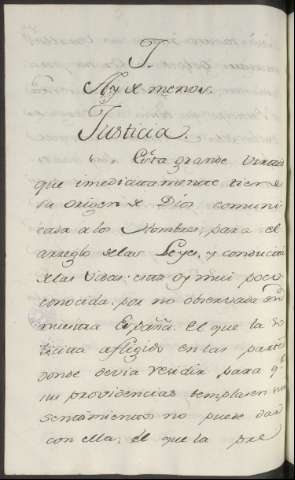 J.
Ay de menos.
Justicia.
Esta grande virtud
que imediatamente tiene
su origen de Dios comuni
cada a los Hombres, para el
arreglo de las Leyes, y conducta
de las vidas; esta oy mui poco
conocida, por no observada en
nuestra España. El que la so
licita afligido en las partes
donde devia residir para qe
sus providencias templasen sus
sentimientos no puede dar
con ella; él que la pre